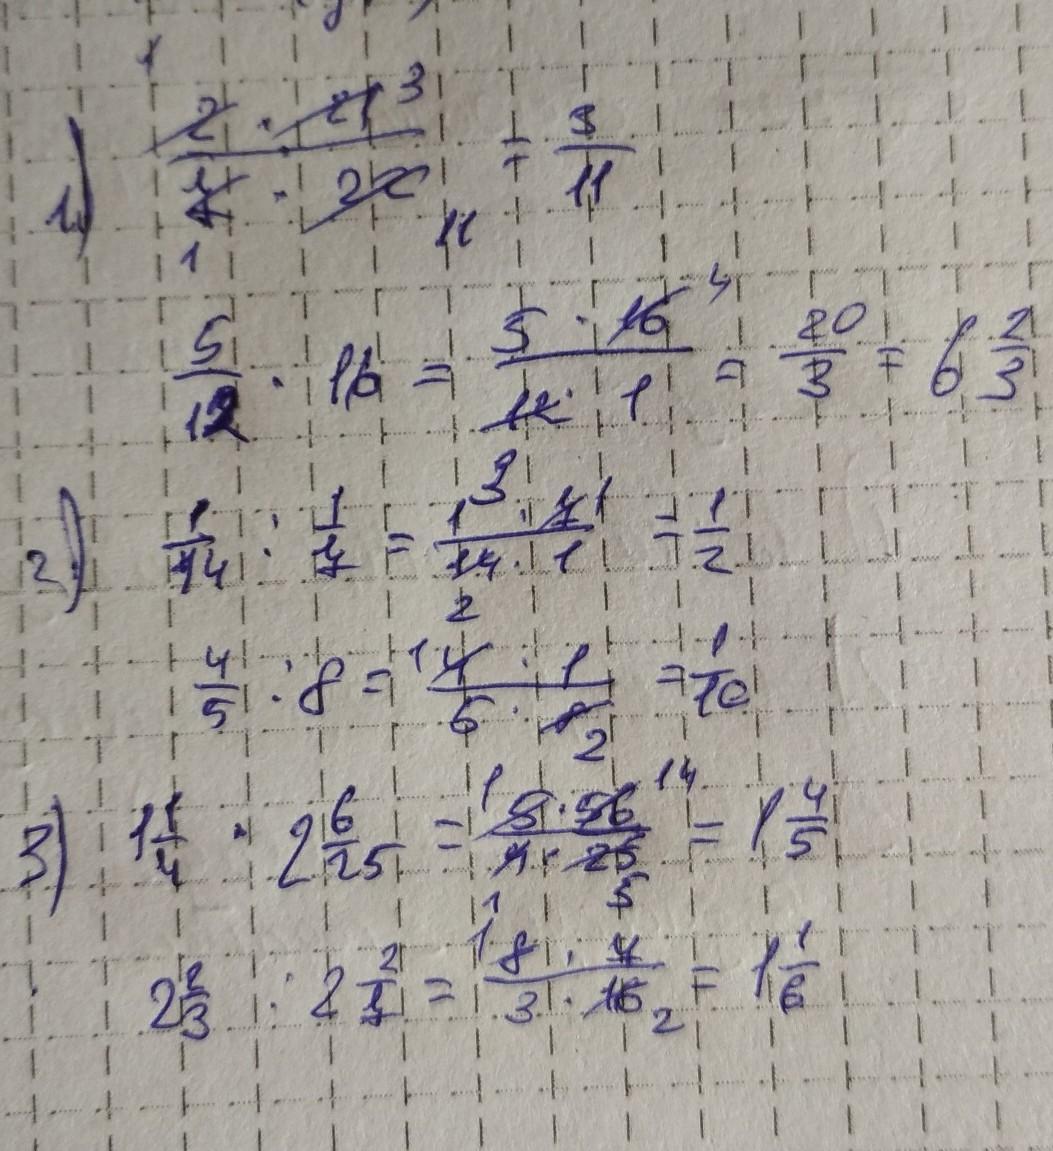 1) (2 · 21)/(7 · 22) = 3/11
5/12 · 16 = (5 · 16)/(12 · 1) = 20/3 = 6 2/3
2) 1/14 : 1/7 = (1 · 7)/(14 · 1) = 1/2
4/5 : 8 = (4 · 1)/(5 · 8) = 1/10
3) 1 1/4 · 2 6/25 = (5 · 56)/(4 · 25) = 1 4/5
2 2/3 : 2 2/7 = (8 · 7)/(3 · 16) = 1 1/6